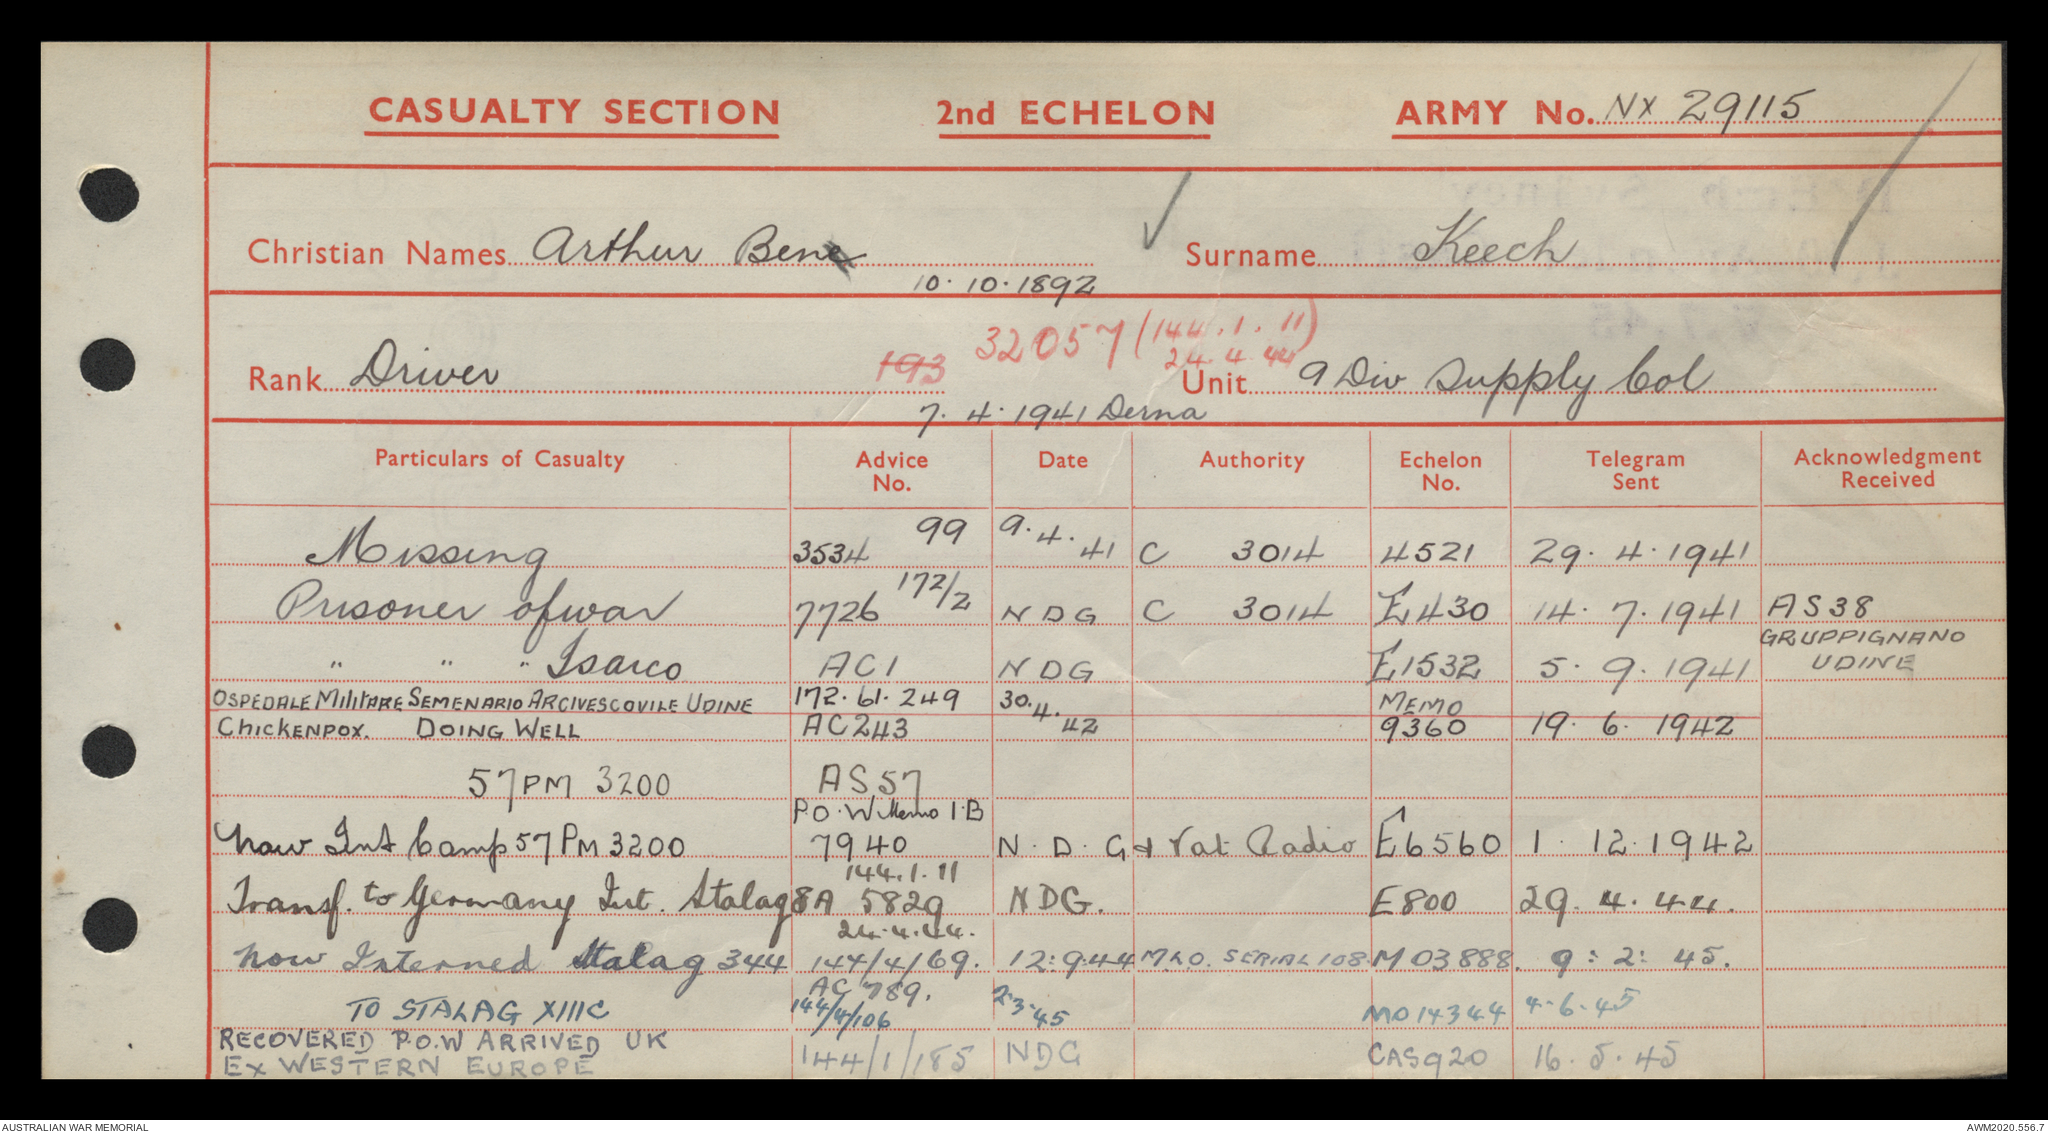 CASUALTY SECTION 2nd ECHELON ARMY No. NX 29115
Christian Names Arthur Ben Surname Keech
10.10.1892
32057 (144.1.11)
24.4.44
Rank Driver 193 Unit 9 Div Supply Col
7.4.1941 Derna
Particulars of Casualty Advice No. Date Authority Echelon No. Telegram Sent Acknowledgment Received
Missing 3534 99 9.4.41 C 3014 4521 29.4.1941
Prisoner of war 7726 172/2 NDG C 3014 E430 14.7.1941 AS38
GRUPPIGNANO
UDINE
" " " Isarco AC1 NDG E1532 5.9.1941
OSPEDALE MILITARE SEMENARIO ARCIVESCOVILE UDINE 172.61.249 30.4.42 MEMO
CHICKENPOX. DOING WELL AC243 9360 19.6.1942
57PM 3200 AS57
P.O.W Memo 1.B
now Int Camp 57 PM 3200 7940 N.D.G + Vat Radio E6560 1.12.1942
144.1.11
Transf. to Germany Int. Stalag 8A 5829 NDG. E800 29.4.44.
24.4.44.
now Interned Stalag 344 144/4/69. 12:9:44 MLO. SERIAL 108 MO3888. 9:2:45.
AC 789.
TO STALAG XIIIC 144/4/106 2.3.45 MO14344 4.6.45
RECOVERED P.O.W ARRIVED UK
EX WESTERN EUROPE 144/1/185 NDG CAS920 16.5.45
AUSTRALIAN WAR MEMORIAL AWM2020.556.7